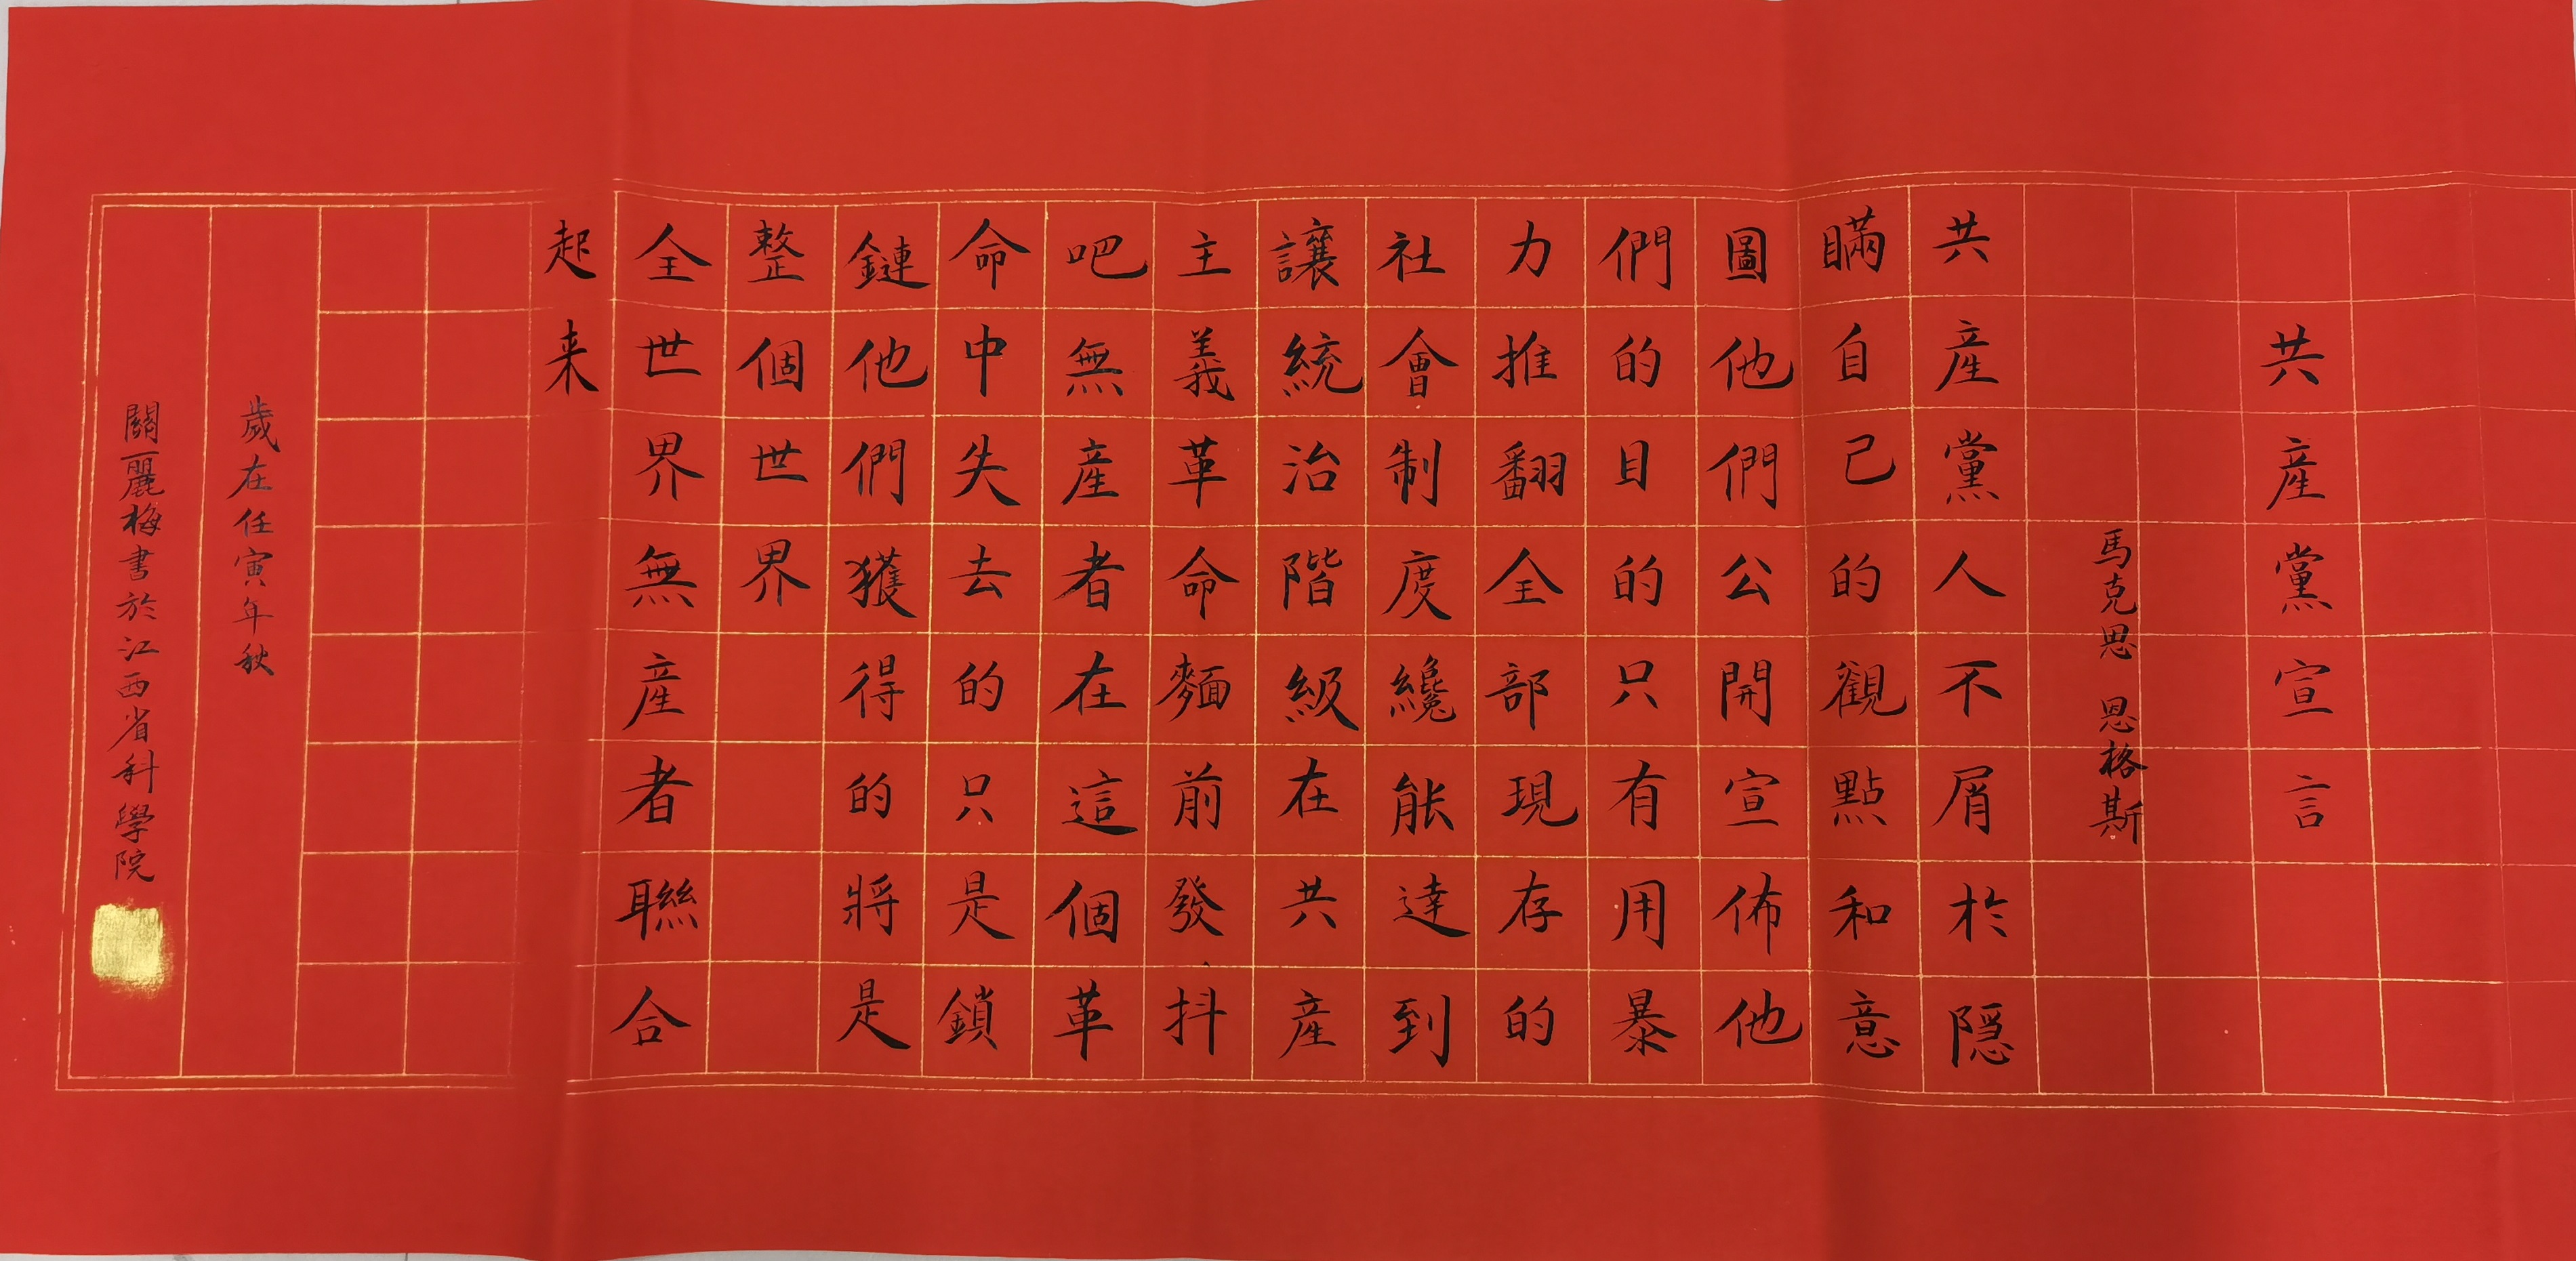 共産黨宣言
馬克思 恩格斯
共産黨人不屑於隱
瞞自己的觀點和意
圖他們公開宣佈他
們的目的只有用暴
力推翻全部現存的
社會制度纔能達到
讓統治階級在共產
主義革命麵前發抖
吧無産者在這個革
命中失去的只是鎖
鏈他們獲得的將是
整個世界
全世界無産者聯合
起来
歲在任寅年秋
關麗梅書於江西省科學院